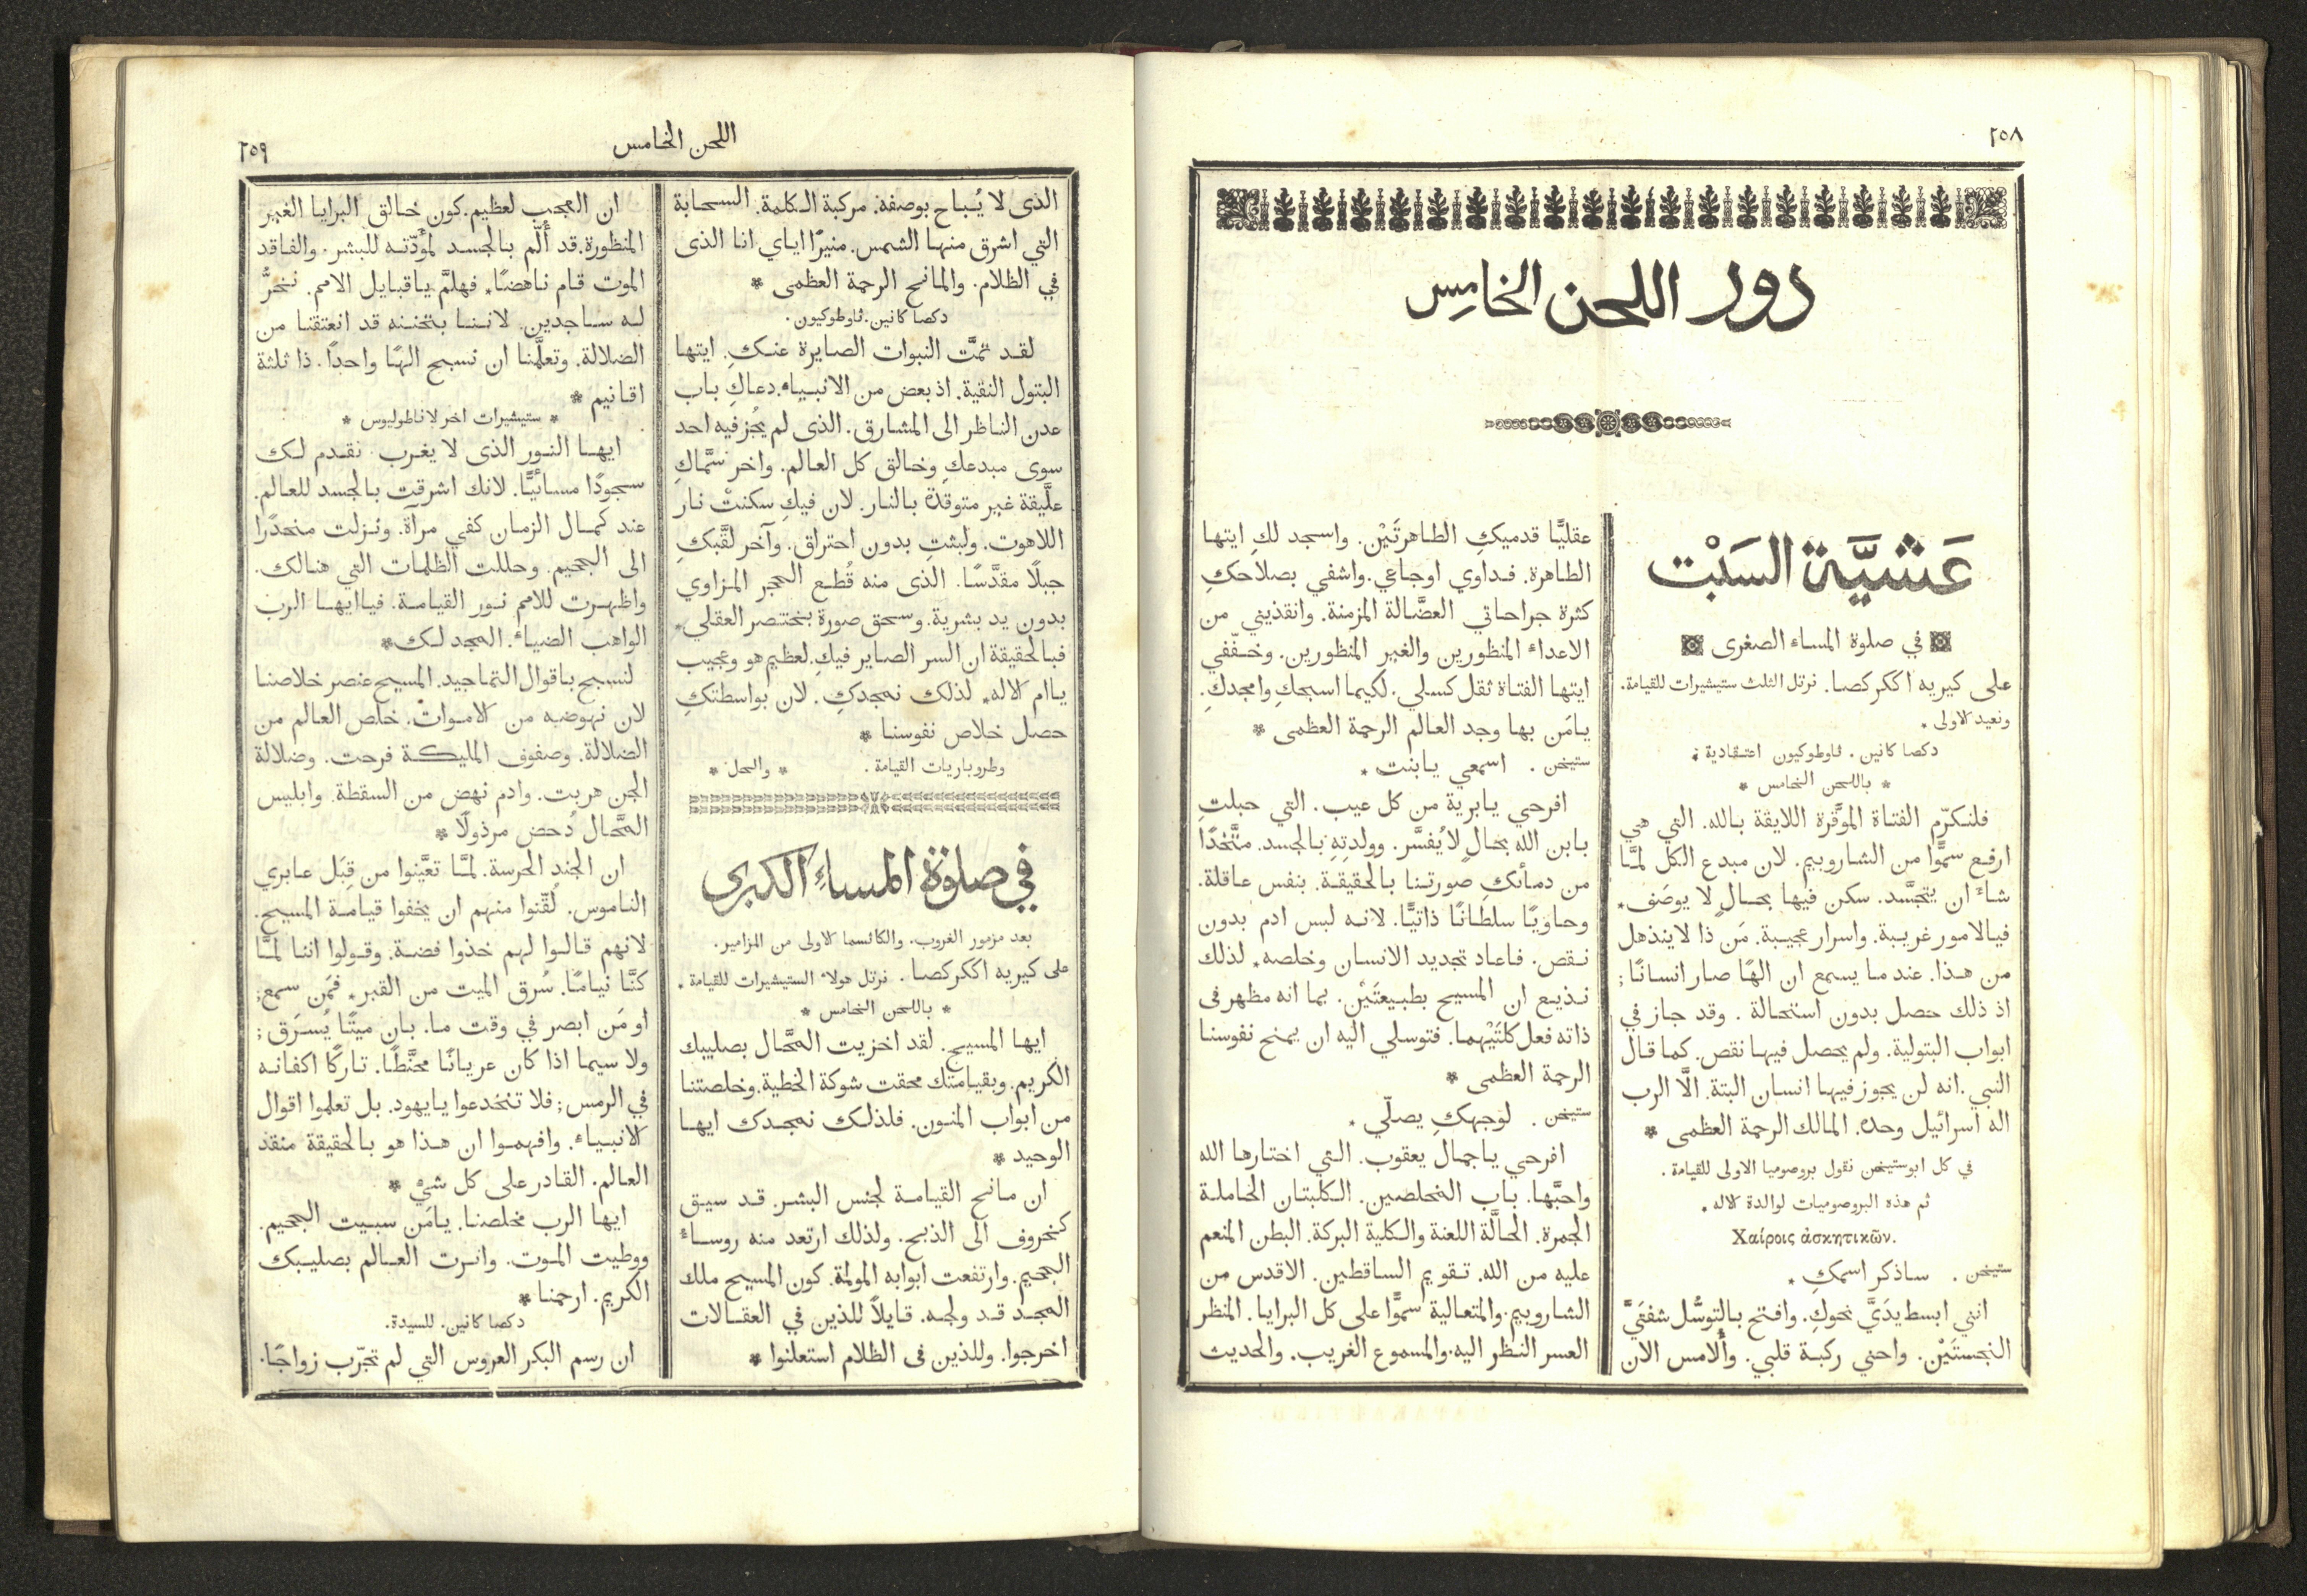 ٢٥٨
دور اللحن الخامِس
عَشيَّة السَبْت
في صلوة المساء الصغرى
على كيريه اككركصا. نرتل الثلث ستيشيرات للقيامة.
ونعيد الاولى *
دكصا كانين. ثاوطوكيون اعتقادية ;
* باللحن الخامس *
فلنكرّم الفتاة الموقَّرة اللايقة بالله. التي هي
ارفع سموًّا من الشاروبيم. لان مبدع الكل لمَّا
شاءَ ان يتجسَّد. سكن فيها بحالٍ لا يوصَف*
فيالامور غريبة. واسرار عجيبة. مَن ذا لا ينذهل
من هذا. عند ما يسمع ان الهًا صار انسانًا;
اذ ذلك حصل بدون استحالة. وقد جاز في
ابواب البتولية. ولم يحصل فيها نقص. كما قال
النبي. انه لن يجوز فيها انسان البتة. الَّا الرب
اله اسرائيل وحده. المالك الرحمة العظمى *
في كل ابوستيخن نقول بروصوميا الاولى للقيامة.
ثم هذه البروصوميات لوالدة الاله.
Χαίροις ἀσκητικῶν.
ستيخن. ساذكر اسمكِ *
انني ابسط يدَيَّ نحوكِ. وافتح بالتوسُّل شفتَيَّ
النجستَيْن. واحني ركبة قلبي. وأُلامس الان
عقليًّا قدميكِ الطاهرتَيْن. واسجد لكِ ايتها
الطاهرة. فداوي اوجاعي. واشفي بصلاحكِ
كثرة جراحاتي العضَّالة المزمنة. وانقذيني من
الاعداء المنظورين والغير المنظورين. وخفّفي
ايتها الفتاة ثقل كسلي. لكيما اسبحكِ وامجدكِ.
يامَن بها وجد العالم الرحمة العظمى *
ستيخن. اسمعي يابنت *
افرحي يابرية من كل عيب. التي حبلتِ
بابن الله بحالٍ لا يُفسَّر. وولدتِهِ بالجسد. متَّخذًا
من دمائكِ صورتنا بالحقيقة. بنفس عاقلة.
وحاويًا سلطانًا ذاتيًّا. لانه لبس ادم بدون
نقص. فاعاد تجديد الانسان وخلصه* لذلك
نذيع ان المسيح بطبيعتَيْن. بما انه مظهر في
ذاته فعل كلتَيْهما. فتوسلي اليه ان يمنح نفوسنا
الرحمة العظمى *
ستيخن. لوجهكِ يصلّي *
افرحي ياجمال يعقوب. التي اختارها الله
واحبَّها. باب المخلصين. الكلبتان الحاملة
الجمرة. الحالَّة اللعنة والكلية البركة. البطن المنعم
عليه من الله. تقويم الساقطين. الاقدس من
الشاروبيم. والمتعالية سموًّا على كل البرايا. المنظر
العسر النظر اليه. والمسموع الغريب. والحديث
اللحن الخامس
٢٥٩
الذى لا يُباح بوصفة. مركبة الكلمة. السحابة
التي اشرق منها الشمس. منيرًا اياي انا الذى
في الظلام. والمانح الرحمة العظمى *
دكصا كانين. ثاوطوكيون.
لقد تمَّت النبوات الصايرة عنكِ. ايتها
البتول النقية. اذ بعض من الانبياء. دعاكِ باب
عدن الناظر الى المشارق. الذى لم يجُز فيه احد
سوى مبدعكِ وخالق كل العالم. واخر سمَّاكِ
علَّيقة غير متوقدة بالنار. لان فيكِ سكنتْ نار
اللاهوت. ولبثتِ بدون احتراق. وآخر لقَّبكِ
جبلًا مقدَّسًا. الذى منه قُطع الحجر المزاوي
بدون يد بشرية. وسحق صورة بختنصر العقلي*
فبالحقيقة ان السر الصاير فيكِ. لعظيم هو وعجيب
ياام الاله* لذلك نمجدكِ. لان بواسطتكِ
حصل خلاص نفوسنا *
وطروباريات القيامة. * والحل *
في صلوة المساءِ الكبرى
بعد مزمور الغروب. والكاثسما الاولى من المزامير.
على كيريه اككركصا. نرتل هولاء الستيشيرات للقيامة.
* باللحن الخامس *
ايها المسيح. لقد اخزيت المحَّال بصليبك
الكريم. وبقيامتك محقت شوكة الخطية. وخلصتنا
من ابواب المنون. فلذلك نمجدك ايها
الوحيد *
ان مانح القيامة لجنس البشر. قد سيق
كخروف الى الذبح. ولذلك ارتعد منه روساءُ
الجحيم. وارتفعت ابوابه المولمة. كون المسيح ملك
المجد قد ولجه. قايلًا للذين في العقالات
اخرجوا. وللذين في الظلام استعلنوا *
ان العجب لعظيم. كون خالق البرايا الغير
المنظورة. قد أَلَم بالجسد لمودّته للبشر. والفاقد
الموت قام ناهضًا* فهلمَّ ياقبايل الامم. نخرُّ
له ساجدين. لاننا بتحننه قد انعتقنا من
الضلالة. وتعلَّمنا ان نسبح الهًا واحدًا. ذا ثلثة
اقانيم *
* ستيشيرات اخر لاناطوليوس *
ايها النور الذى لا يغرب. نقدم لك
سجودًا مسائيًّا. لانك اشرقت بالجسد للعالم.
عند كمال الزمان كفي مرآة. ونزلت منحدرًا
الى الجحيم. وحللت الظلمات التي هنالك.
واظهرت للامم نور القيامة. فياايها الرب
الواهب الضياءَ. المجد لك*
لنسبح باقوال التماجيد. المسيح عنصر خلاصنا
لان نهوضه من الاموات. خلص العالم من
الضلالة. وصفوف المليكة فرحت. وضلالة
الجن هربت. وادم نهض من السقطة. وابليس
المحَّال دُحض مرذولًا *
ان الجند الحرسة. لمَّا تعيَّنوا من قِبَل عابري
الناموس. لُقّنوا منهم ان يخفوا قيامة المسيح.
لانهم قالوا لهم خذوا فضة. وقولوا اننا لمَّا
كنَّا نيامًا. سُرق الميت من القبر* فمَن سمع;
او مَن ابصر في وقت ما. بان ميتًا يُسرَق;
ولا سيما اذا كان عريانًا محنَّطًا. تاركًا اكفانه
في الرمس; فلا تنخدعوا يايهود. بل تعلموا اقوال
الانبياء. وافهموا ان هذا هو بالحقيقة منقذ
العالم. القادر على كل شيْ *
ايها الرب مخلصنا. يامَن سبيت الجحيم.
ووطيت الموت. وانرت العالم بصليبك
الكريم. ارحمنا *
دكصا كانين. للسيدة.
ان رسم البكر العروس التي لم تجرّب زواجًا.